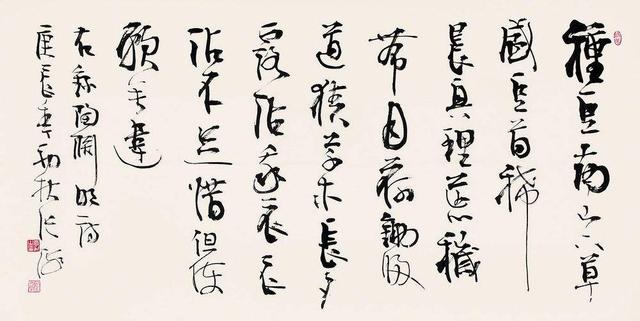 種豆南山下草
盛豆苗稀
晨興理荒穢
帶月荷鋤歸
道狹草木長夕
露沾我衣衣
沾不足惜但使
願無違
右錄陶淵明詩
庚辰年初秋張海